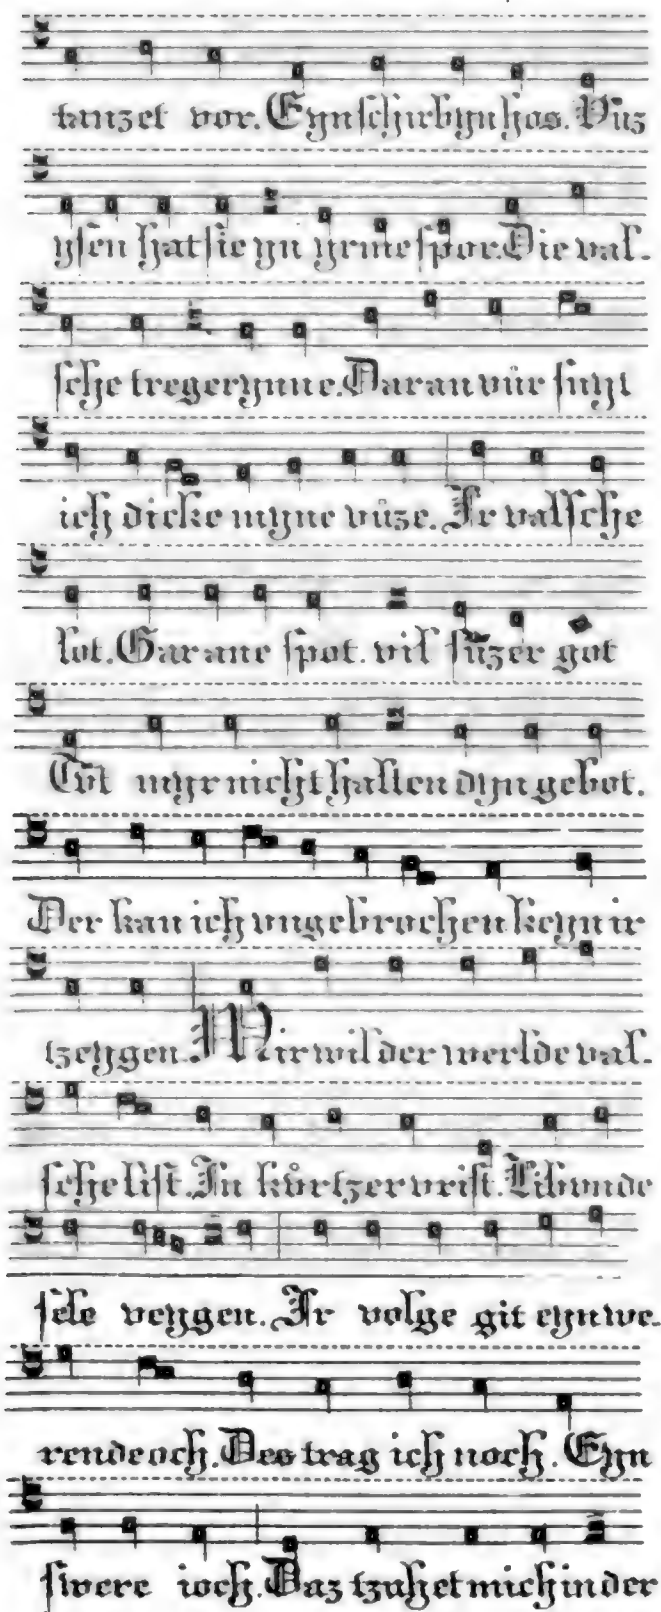 tanzet vor. Eyn schirbyn has. Vůz
ysen hat sie yn yrme spor. Die val-
sche tregerynne. Daran vůr suyl
ich dicke myne vůze. Ir valsche
lot. Gar ane spot. vil sůzer got
Tůt myr nicht halten dyn gebot.
Der kan ich vngebrochen keyn ir
tzeygen. Mir wil der werlde val-
sche list. In kůrtzer vrist. Lib vnde
sele veygen. Ir volge git eyn we-
rende och. Des trag ich noch. Eyn
swere ioch. Daz tzuhet mich in der